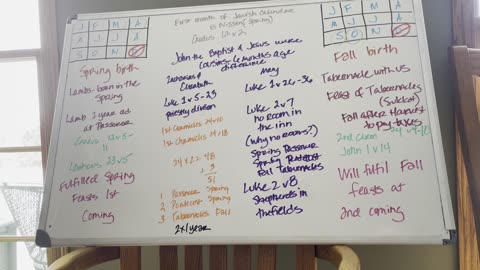 J F M A
A J J A
S O N
First month of Jewish Calendar
is Nissan (Spring)
Exodus 12 v 2
J F M A
A J J A
S O N
Spring birth
Lambs born in the
Spring
Lamb 1 year old
at Passover
Exodus 12 v 5-
11
Leviticus 23 v 5
Fulfilled Spring
Feasts 1st
Coming
John the Baptist & Jesus were
cousins - 6 months age
difference
Zacharias &
Elizabeth
Luke 1 v 5-23
priestly division
1st Chronicles 24 v 10
1st Chronicles 24 v 18
24 x 2 = 48
+ 3
51
1 Passover Spring
2 Pentecost Spring
3 Tabernacles Fall
2x 1 year
Mary
Luke 1 v 26-36
Luke 2 v 7
no room in
the inn
(Why no room?)
Spring Passover
Spring Pentecost
Fall Tabernacles
Luke 2 v 8
Shepherds in
the fields
Fall birth
Tabernacle with us
Feast of Tabernacles
(Sukkot)
Fall after Harvest
to pay taxes
2nd Chron
John 1 v 14
Will fulfil Fall
feasts at
2nd coming